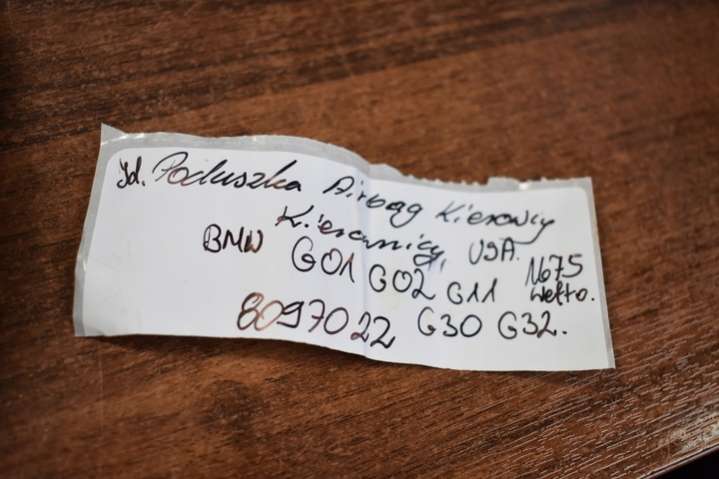 Jd. Poduszka Airbag Kierowcy
Kierownicy, USA.
BMW G01 G02 G11 1675 netto.
8097022 G30 G32.